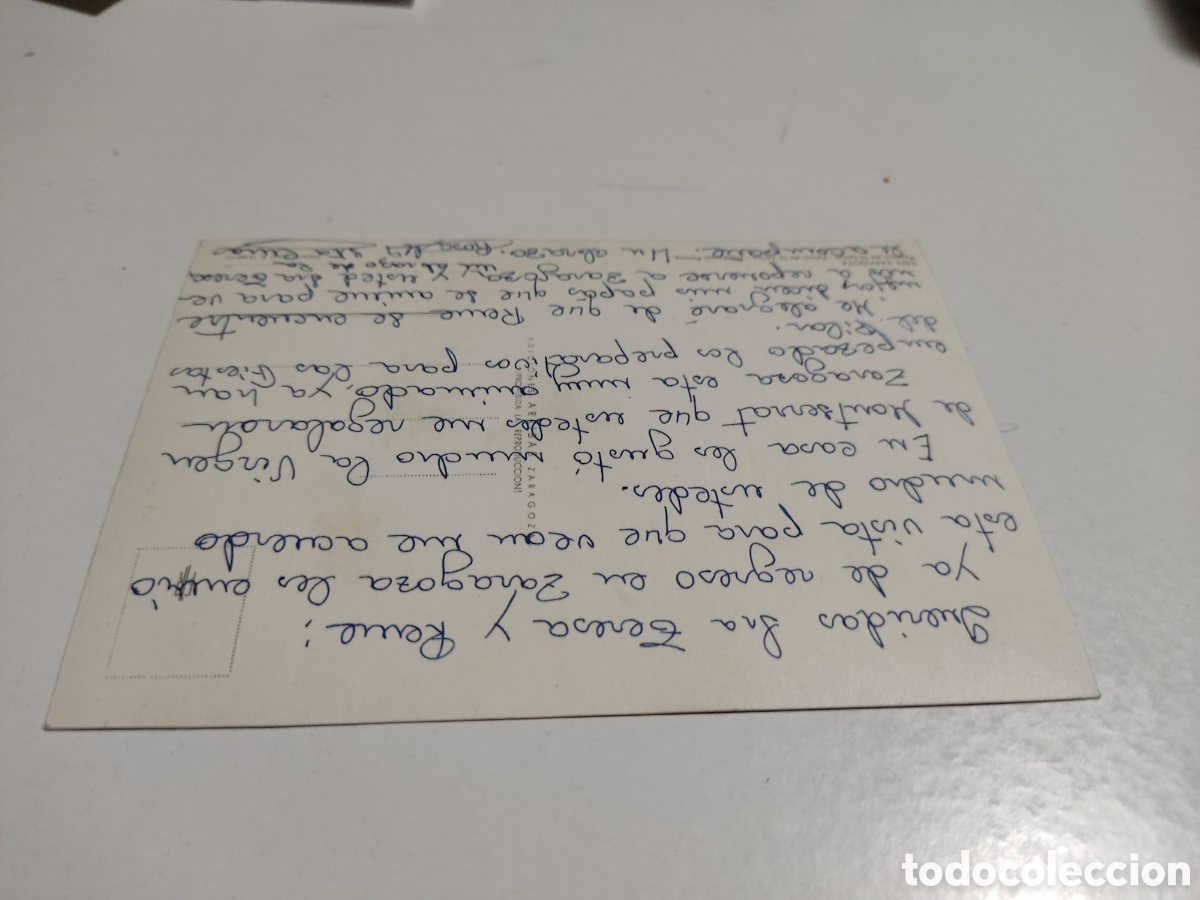 Queridas Sra Teresa y Reme:
Ya de regreso en Zaragoza les envio
esta vista para que vean me acuerdo
mucho de ustedes.
En casa les gustó mucho la Virgen
de Montserrat que ustedes me regalaron
Zaragoza esta muy animado, ya han
empezado los preparativos para las Fiestas
del Pilar.
Me alegraré de que Reme se encuentre
mejor dicen mis papás que se anime para ve-
nos a reponerse a Zaragoza y usted Sra Teresa
se acompañe. Un abrazo. Rosa
EDICIONES ZARAGOZA
PROHIBIDA LA REPRODUCCION
todocoleccion